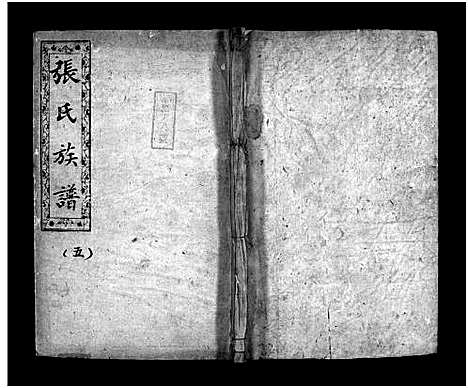 張氏族譜
（五）